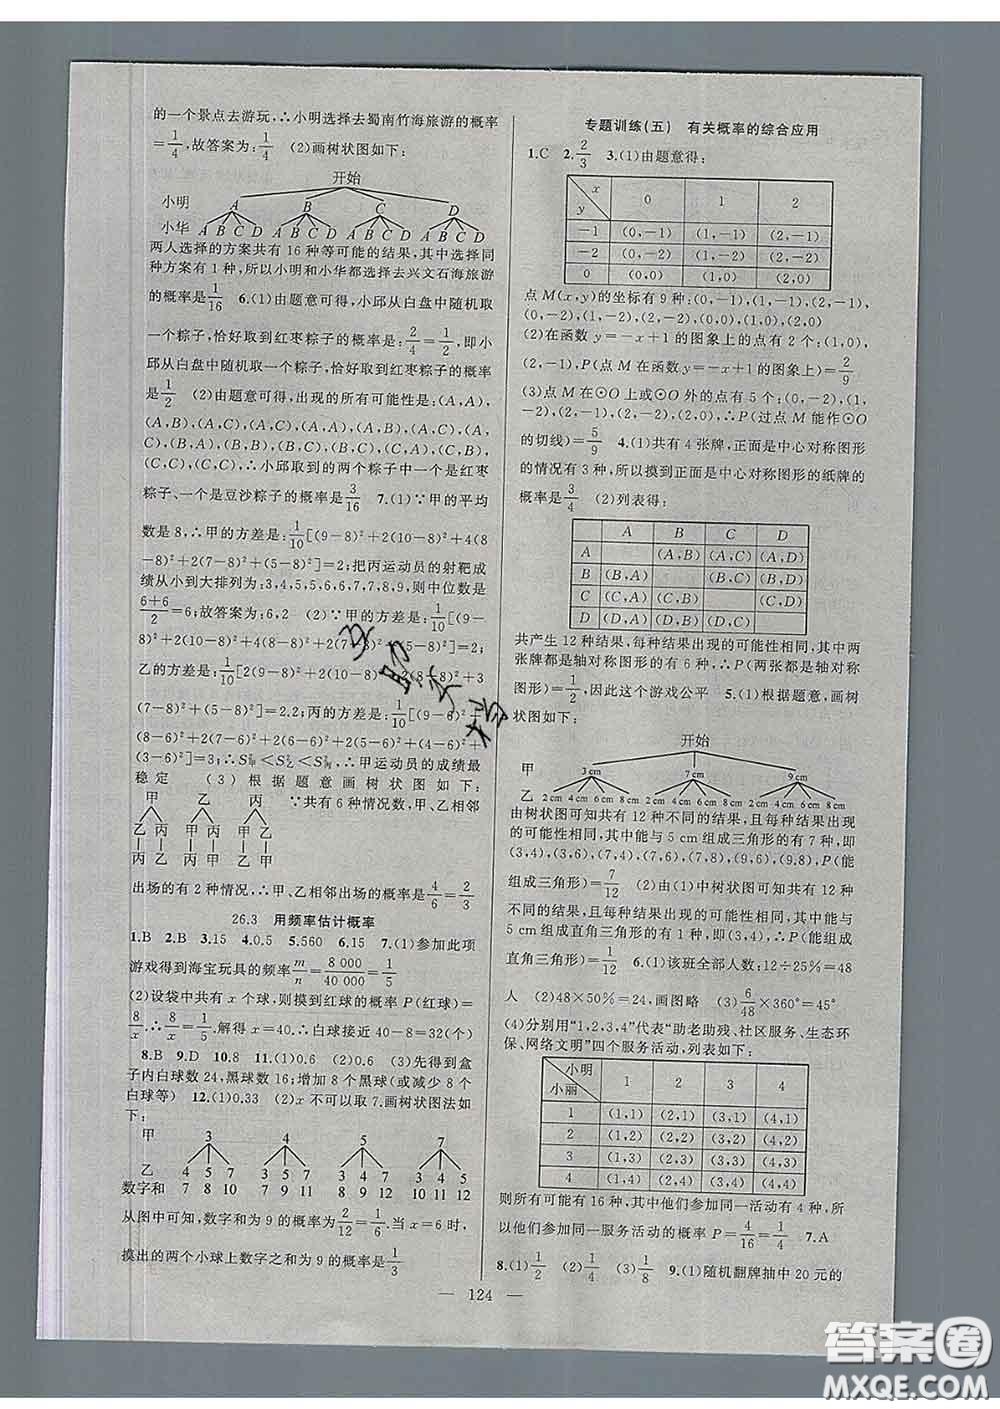 的一个景点去游玩,∴小明选择去蜀南竹海旅游的概率
1/4,故答案为:1/4 (2)画树状图如下:
开始
小明 A B C D
小华 A B C D A B C D A B C D A B C D
两人选择的方案共有 16 种等可能的结果,其中选择同
种方案有 1 种,所以小明和小华都选择去兴文石海旅游
的概率是1/16 6.(1)由题意可得,小邱从白盘中随机取
一个粽子,恰好取到红枣粽子的概率是:2/4=1/2,即小
邱从白盘中随机取一个粽子,恰好取到红枣粽子的概率
是1/2 (2)由题意可得,出现的所有可能性是:(A,A),
(A,B),(A,C),(A,C),(A,A),(A,B),(A,C),(A,
C),(B,A),(B,B),(B,C),(B,C),(C,A),(C,B),
(C,C),(C,C),∴小邱取到的两个粽子中一个是红枣
粽子、一个是豆沙粽子的概率是3/16 7.(1)∵甲的平均
数是 8,∴甲的方差是:1/10[(9-8)²+2(10-8)²+4(8
-8)²+2(7-8)²+(5-8)²]=2;把丙运动员的射靶成
绩从小到大排列为:3,4,5,5,6,6,7,7,8,9,则中位数是
(6+6)/2=6;故答案为:6,2 (2)∵甲的方差是:1/10[(9-
8)²+2(10-8)²+4(8-8)²+2(7-8)²+(5-8)²]=2;
乙的方差是:1/10[2(9-8)²+2(10-8)²+2(8-8)²+3
(7-8)²+(5-8)²]=2.2;丙的方差是:1/10[(9-6)²+
(8-6)²+2(7-6)²+2(6-6)²+2(5-6)²+(4-6)²+
(3-6)²]=3;∴S²甲<S²乙<S²丙,∴甲运动员的成绩最
稳定 (3)根据题意画树状图如下:
甲 乙 丙 ∵共有 6 种情况数,甲、乙相邻
乙 丙 甲 丙 甲 乙
丙 乙 丙 甲 乙 甲
出场的有 2 种情况,∴甲、乙相邻出场的概率是4/6=2/3
26.3 用频率估计概率
1.B 2.B 3.15 4.0.5 5.560 6.15 7.(1)参加此项
游戏得到海宝玩具的频率m/n=8 000/40 000=1/5
(2)设袋中共有 x 个球,则摸到红球的概率 P(红球)=
8/x.∴8/x=1/5.解得 x=40.∴白球接近 40-8=32(个)
8.B 9.D 10.8 11.(1)0.6 (2)0.6 (3)先得到盒
子内白球数 24,黑球数 16;增加 8 个黑球(或减少 8 个
白球等) 12.(1)0.33 (2)x 不可以取 7.画树状图法如
下:
甲 3 4 5 7
乙 4 5 7 3 5 7 3 4 7 3 4 5
数字和 7 8 10 7 9 11 8 9 12 10 11 12
从图中可知,数字和为 9 的概率为2/12=1/6.当 x=6 时,
摸出的两个小球上数字之和为 9 的概率是1/3
专题训练(五) 有关概率的综合应用
1.C 2.2/3 3.(1)由题意得:
x y 0 1 2
-1 (0,-1) (1,-1) (2,-1)
-2 (0,-2) (1,-2) (2,-2)
0 (0,0) (1,0) (2,0)
点 M(x,y)的坐标有 9 种:(0,-1),(1,-1),(2,-1),
(0,-2),(1,-2),(2,-2),(0,0),(1,0),(2,0)
(2)在函数 y=-x+1 的图象上的点有 2 个:(1,0),
(2,-1),P(点 M 在函数 y=-x+1 的图象上)=2/9
(3)点 M 在⊙O 上或⊙O 外的点有 5 个:(0,-2),(1,
-2),(2,-1),(2,-2),(2,0),∴P(过点 M 能作⊙O
的切线)=5/9 4.(1)共有 4 张牌,正面是中心对称图形
的情况有 3 种,所以摸到正面是中心对称图形的纸牌的
概率是3/4 (2)列表得:
A B C D
A (A,B) (A,C) (A,D)
B (B,A) (B,C) (B,D)
C (C,A) (C,B) (C,D)
D (D,A) (D,B) (D,C)
共产生 12 种结果,每种结果出现的可能性相同,其中两
张牌都是轴对称图形的有 6 种,∴P(两张都是轴对称
图形)=1/2,因此这个游戏公平 5.(1)根据题意,画树
状图如下:
开始
甲 3 cm 7 cm 9 cm
乙 2 cm 4 cm 6 cm 8 cm 2 cm 4 cm 6 cm 8 cm 2 cm 4 cm 6 cm 8 cm
由树状图可知共有 12 种不同的结果,且每种结果出现
的可能性相同,其中能与 5 cm 组成三角形的有 7 种,即
(3,4),(3,6),(7,4),(7,6),(7,8),(9,6),(9,8),P(能
组成三角形)=7/12 (2)由(1)中树状图可知共有 12 种
不同的结果,且每种结果出现的可能性相同,其中能与
5 cm 组成直角三角形的有 1 种,即(3,4),∴P(能组成
直角三角形)=1/12 6.(1)该班全部人数:12÷25%=48
人 (2)48×50%=24,画图略 (3)6/48×360°=45°
(4)分别用“1,2,3,4”代表“助老助残、社区服务、生态环
保、网络文明”四个服务活动,列表如下:
小明 小丽 1 2 3 4
1 (1,1) (2,1) (3,1) (4,1)
2 (1,2) (2,2) (3,2) (4,2)
3 (1,3) (2,3) (3,3) (4,3)
4 (1,4) (2,4) (3,4) (4,4)
则所有可能有 16 种,其中他们参加同一活动有 4 种,所
以他们参加同一服务活动的概率 P=4/16=1/4 7.A
8.(1)1/2 (2)1/4 (3)1/8 9.(1)随机翻牌抽中 20 元的
— 124 —
答案圈
MXQE.COM